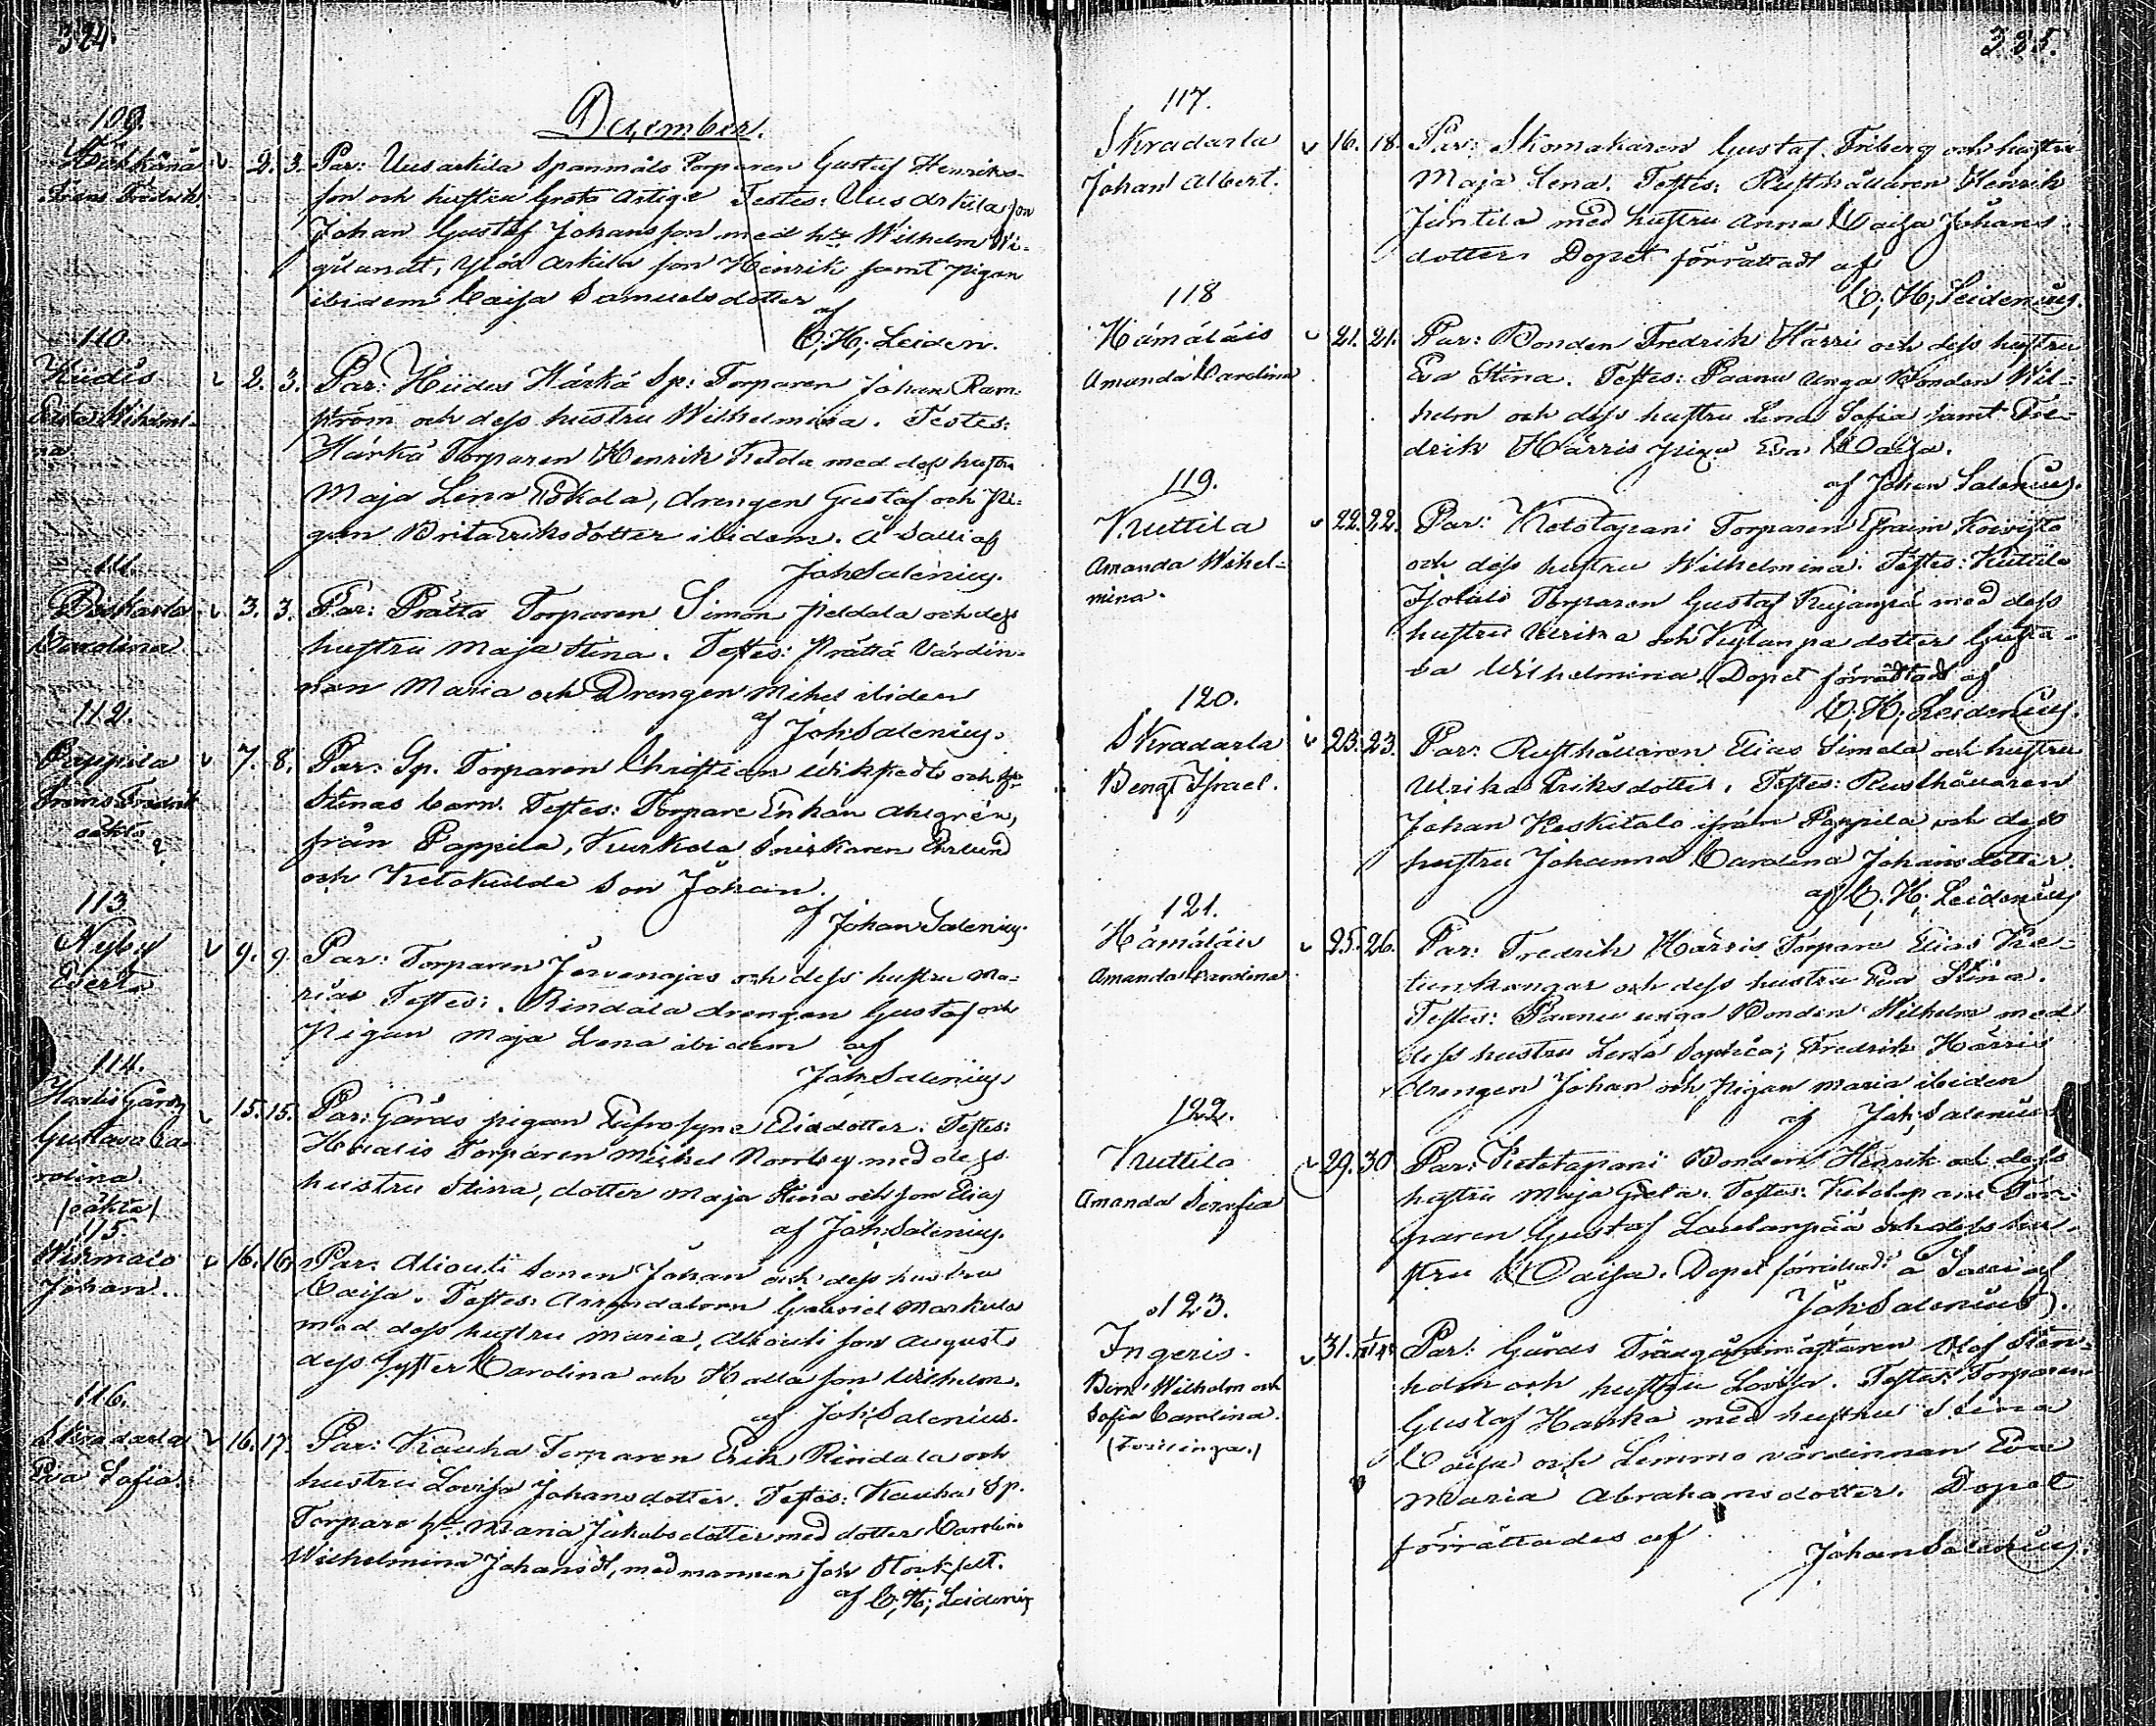 324.
December.
109.
Frans Fredrik
2. 3. Par: Uusarkila Spanmåls Torparen Gustaf Henriks-
son och hustru Greta Testes: Uusarkila son
Johan Gustaf Johansson med hr Wilhelm Wi-
gilandt, Arkila son Henrik samt pigan
ibidem Caisa Samuelsdotter
af
C; H; Leiden.
110.
Hiidis
Wilhelmi-
na
2. 3. Par: Hiidis Härkä Sp: Torparen Johan Ram-
ström och dess hustru Wilhelmina. Testes:
Härkä Torparen Henrik med dess hustru
Maja Lena, drengen Gustaf och Pi-
gan Brita Eriksdotter ibidem. af
Joh: Salenius.
111.
Carolina
3. 3. Par: Prätta Torparen Simon Peldala och dess
hustru Maja Stina. Testes: Prättä Värdin-
nan Maria och Drengen Mihel ibidem
af Joh: Salenius.
112.
Pappila
Frans Fredrik
oäkta
7. 8. Par: Sp. Torparen Christian och
Stinas barn. Testes: Torpare Enkan Ahlgrén,
från Pappila, Kurkola Snickaren
och Ketokulda Son Johan.
af Johan Salenius.
113
Nyby
Everta
9. 9. Par: Torparen Jervenojas och dess hustru Ma-
ria Testes: Rindala drengen Gustaf och
Pigan Maja Lena ibidem af
Joh: Salenius
114.
Gård
Gustava Ca-
rolina
(oäkta)
15. 15. Par: Gårds pigan Eufrosyne Elisdotter. Testes:
Torparen Michel med dess
hustru Stina, dotter Maja Stina och son Elias
af Joh: Salenius.
115.
Johan.
16. 16. Par: Aliouti Sonen Johan och dess hustru
Caisa. Testes: Arrendatorn Gabriel Markula
med dess hustru Maria, Aliouti son August
dess syster Carolina och Halla son Wilhelm.
af Joh: Salenius.
116.
Skradarla
Eva Sofia.
16. 17. Par: Kauha Torparen Erik Rindala och
hustru Lovisa Johansdotter. Testes: Kauha Sp.
Torpare hu Maria Jakobsdotter med dotter Carolina
Wilhelmina Johansdr, med mannen Joh
af C; H; Leidenius
325.
117.
Skradarla
Johan Albert.
16. 18. Par: Skomakaren Gustaf Friberg och hustru
Maja Lena. Testes: Rusthållaren Henrik
Juntila med hustru Anna Caisa Johans-
dotter. Dopet förrättadt af
C; H; Leidenius.
118
Hämäläis
Amanda Carolina
21. 21. Par: Bonden Fredrik Härri och dess hustru
Eva Stina. Testes: Paanu unga Bonden Wil-
helm och dess hustru Lena Sofia samt Fre-
drik Härris piga Eva Caisa.
af Johan Salenius.
119.
Kuttila
Amanda Wihel-
mina.
22. 22. Par: Ketotapani Torparen Efraim Koivisto
och dess hustru Wilhelmina. Testes: Kuttila
Torparen Gustaf Kujanpä med dess
hustru Ulrika och Kujanpä dotter Gusta-
va Wilhelmina. Dopet förrättadt af
C; H; Leidenius.
120.
Skradarla
Bengt Israel.
23. 23. Par: Rusthållaren Elias Simela och hustru
Ulrika Eriksdotter. Testes: Rusthållaren
Johan Keskitalo ifrån Pappila och dess
hustru Johanna Carolina Johansdotter.
af C; H; Leidenius
121.
Hämäläis
Amanda Carolina
25. 26. Par: Fredrik Härris Torpare Elias
och dess hustru Eva Stina.
Testes: Paanu unga Bonden Wilhelm med
dess hustru Lena Sophia; Fredrik Härris
drengen Johan och Pigan Maria ibidem
af Joh: Salenius
122.
Kuttila
Amanda Serafia
29. 30 Par: Ketotapani Bonden Henrik och dess
hustru Maja Greta. Testes: Ketotapani Tor-
paren Gustaf Laulanpää och dess hu-
stru Caisa. Dopet förrättadt af
Joh: Salenius.
123.
Ingeris.
Wilhelm och
Sofia Carolina.
(Tvillingar)
31. Par: Gårds Trädgårdmästaren Olof Sten-
holm och hustru Lovisa. Testes: Torparen
Gustaf Hauka med hustru Stina
Caisa och Lemmo värdinnan Eva
Maria Abrahamsdotter. Dopet
förrättades af
Johan Salenius.